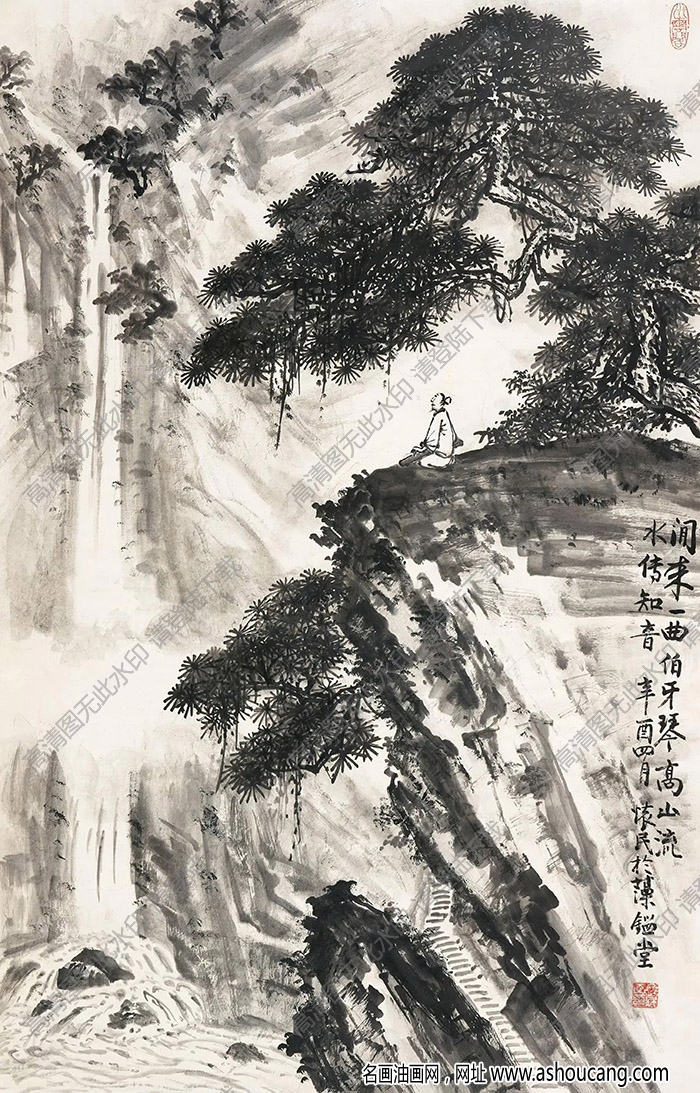 闲来一曲伯牙琴高山流
水传知音 辛酉四月 怀民於藻鑑堂
高清图无此水印 请登陆下载
名画油画网，网址 www.ashoucang.com